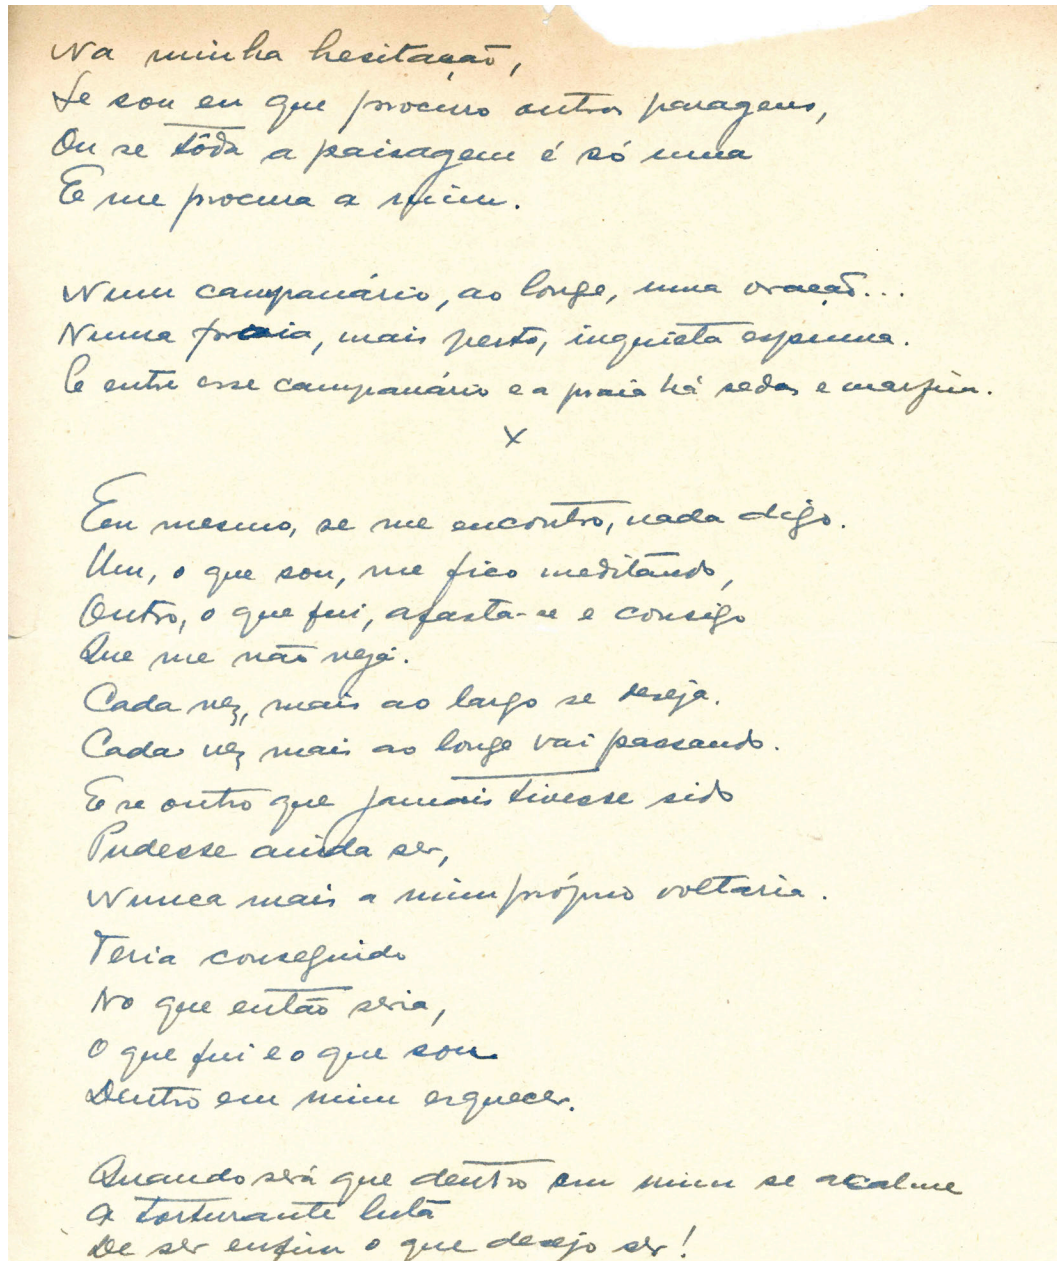 Na minha hesitação,
Se sou eu que procuro outras paragens,
Ou se tôda a paisagem é só uma
E me procura a mim.
Num campanário, ao longe, uma oração...
Numa praia, mais perto, inquieta espuma.
E entre esse campanário e a praia há sedas e marfim.
x
Eu mesmo, se me encontro, nada digo.
Um, o que sou, me fico meditando,
Outro, o que fui, afasta-se e consigo
Que me não veja.
Cada vez, mais ao largo se deseja.
Cada vez mais ao longe vai passando.
E se outro que jamais tivesse sido
Pudesse ainda ser,
Nunca mais a mim próprio voltaria.
Teria conseguido
No que então seria,
O que fui e o que sou
Dentro em mim esquecer.
Quando será que dentro em mim se acalme
A torturante luta
De ser enfim o que desejo ser!